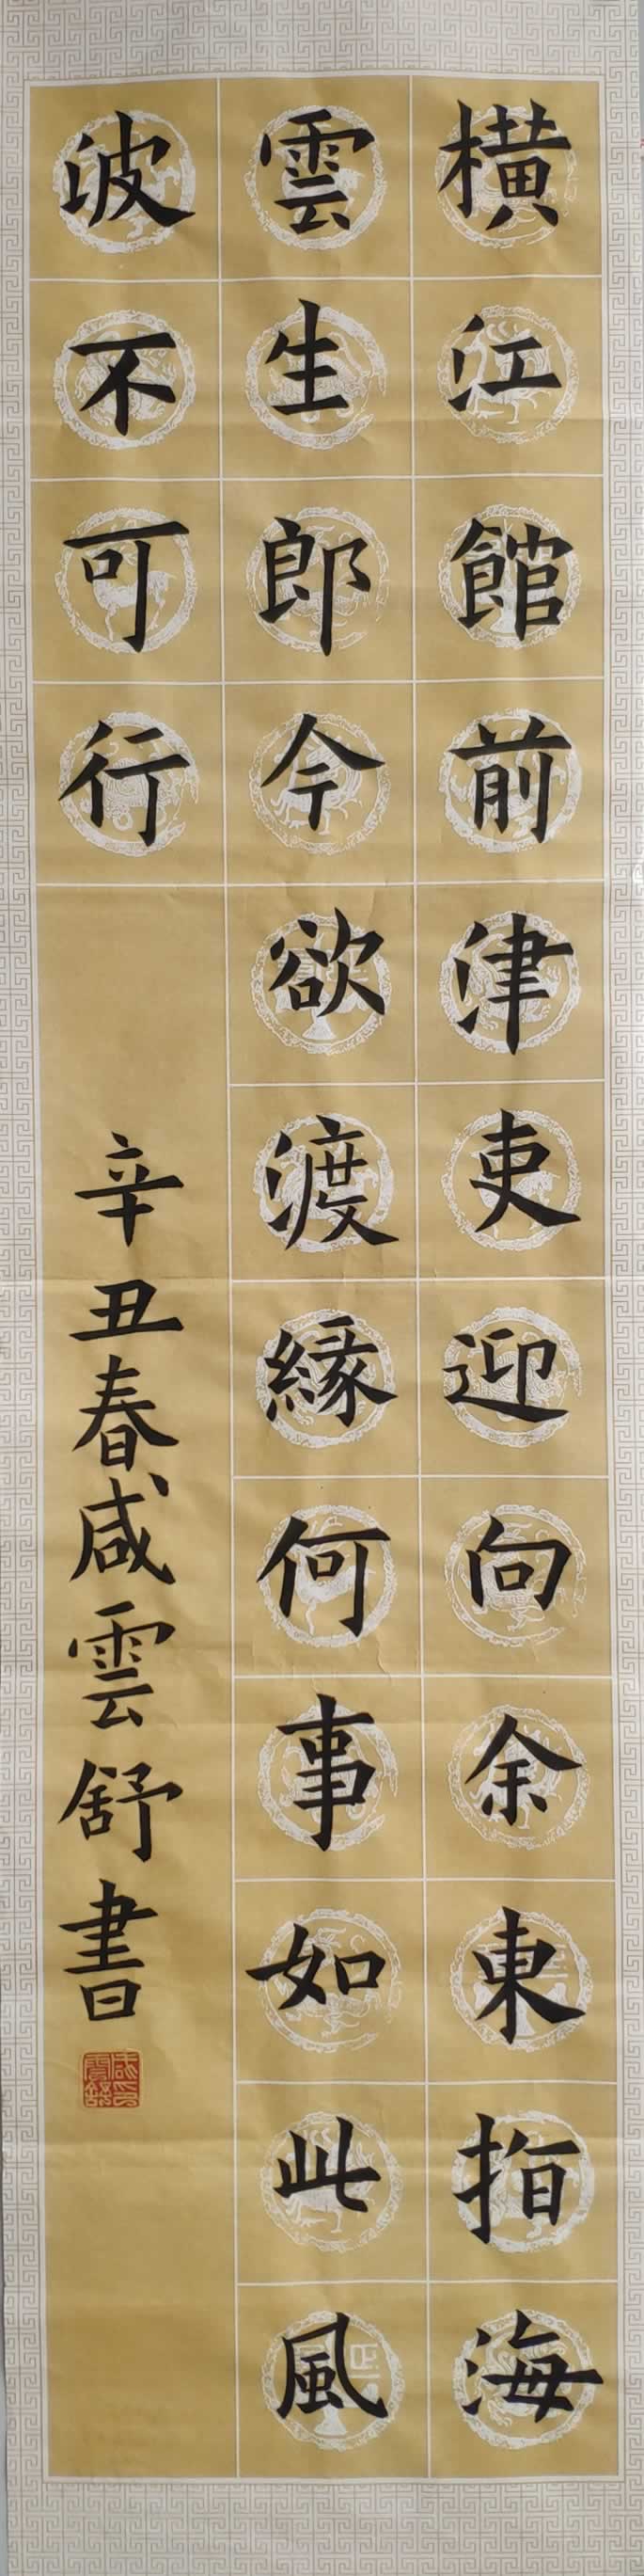 橫江館前津吏迎向余東指海
雲生郎今欲渡緣何事如此風
波不可行
辛丑春咸雲舒書